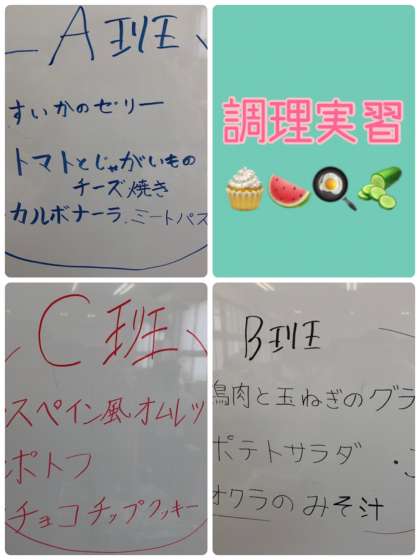 A班
すいかのゼリー
トマトとじゃがいもの
チーズ焼き
カルボナーラ.ミートパス
調理実習
C班
スペイン風オムレッ
ポトフ
チョコチップクッキー
B班
鶏肉と玉ねぎのグラ
ポテトサラダ
オクラのみそ汁